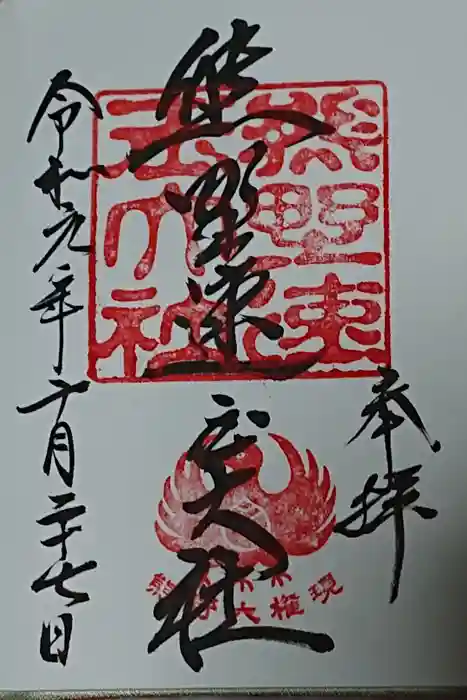 奉拝
熊野速玉大社
熊野速
玉大社
熊野大権現
令和元年十月二十七日